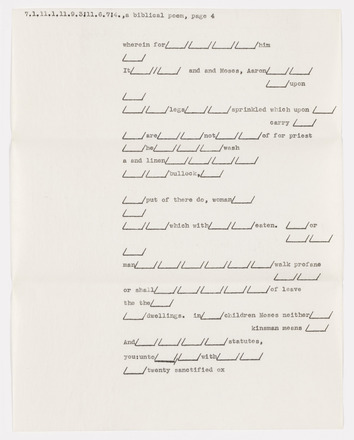 7.1.11.1.11.9.3!11.6.7!4.,a biblical poem, page 4
wherein for/____//____//____//____/him
/____/
It/____//____/ and and Moses, Aaron/____//____/
/____/upon
/____/
/____//____/legs/____//____/sprinkled which upon /____/
carry /____/
/____/are/____//____/not/____//____/of for priest
/____/be/____//____//____/wash
a and linen/____//____//____//____/
/____//____/bullock,/____/
/____/put of there do, woman/____/
/____/
/____//____/which with/____//____/eaten. /____/or
/____//____/
/____/
man/____//____//____//____//____//____/walk profane
/____//____/
or shall/____//____//____//____//____/of leave
the the/____/
/____/dwellings. in/____/children Moses neither/____/
kinsman means /____/
And/____//____//____//____/statutes,
you:unto/____//____/with/____//____/
/____/twenty sanctified ox